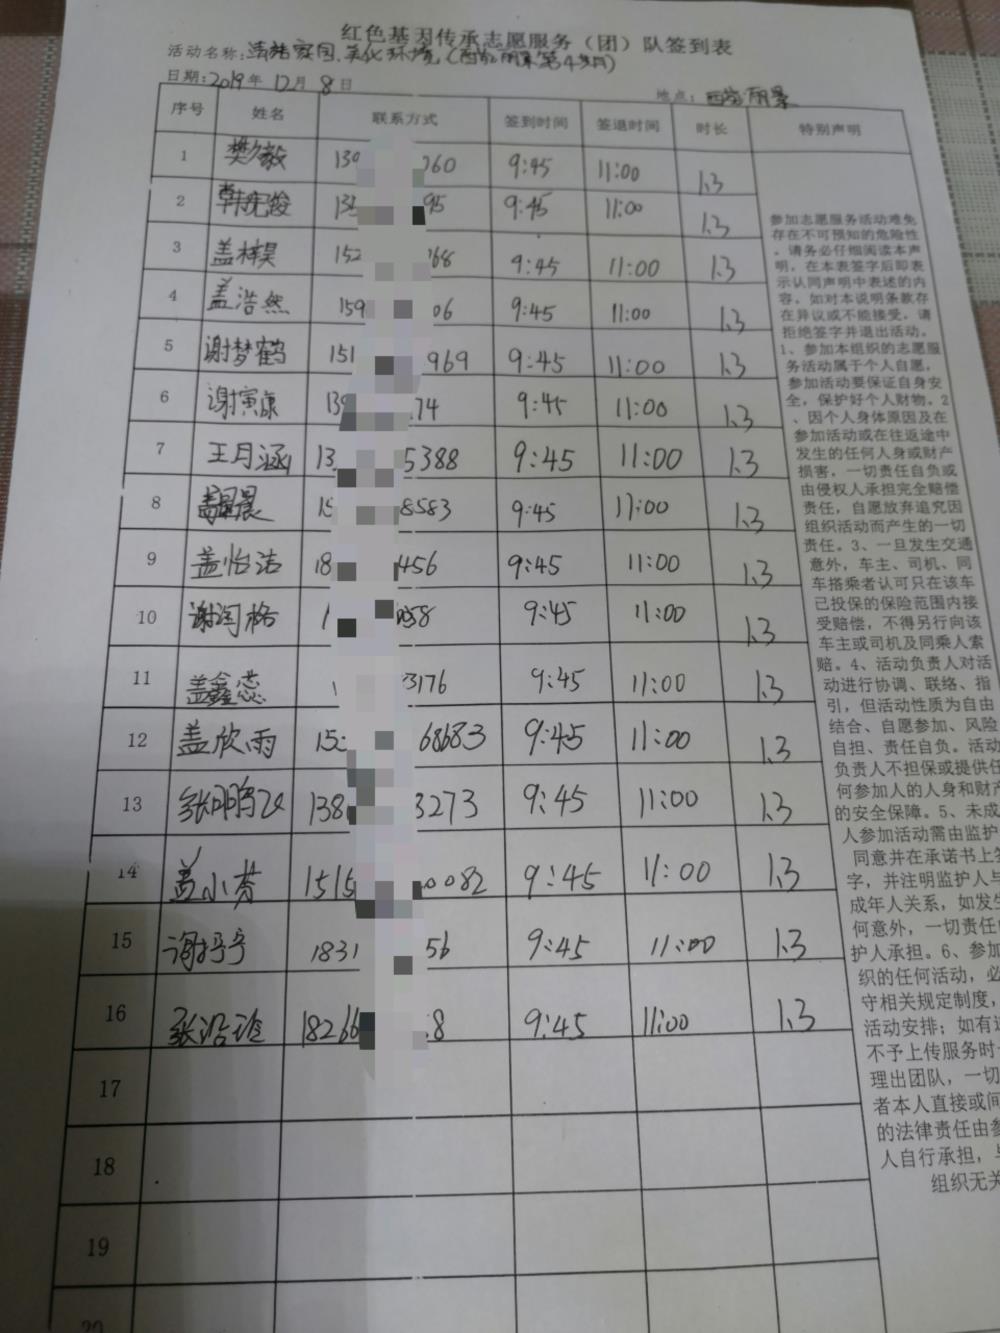 红色基因传承志愿服务（团）队签到表
活动名称：清洁家园、美化环境（西岩丽景第4小时）
日期：2019年12月8日
地点：西岩丽景
序号 姓名 联系方式 签到时间 签退时间 时长 特别声明
1 樊久毅 139 060 9:45 11:00 1.3
2 95 9:45 11:00 1.3
3 盖梓昊 152 068 9:45 11:00 1.3
4 盖浩然 159 06 9:45 11:00 1.3
5 谢梦鹤 151 969 9:45 11:00 1.3
6 谢寅康 139 74 9:45 11:00 1.3
7 王月涵 13 5388 9:45 11:00 1.3
8 盖晨 15 8583 9:45 11:00 1.3
9 盖怡洁 18 456 9:45 11:00 1.3
10 谢闰格 1 058 9:45 11:00 1.3
11 盖鑫蕊 1 3176 9:45 11:00 1.3
12 盖欣雨 152 68683 9:45 11:00 1.3
13 张鹏飞 138 3273 9:45 11:00 1.3
14 盖小芳 1515 0082 9:45 11:00 1.3
15 谢 1831 56 9:45 11:00 1.3
16 张浩 18266 8 9:45 11:00 1.3
17
18
19
20
参加志愿服务活动难免
存在不可预知的危险性
，请务必仔细阅读本声
明，在本表签字后即表
示认同声明中表述的内
容。如对本说明条款存
在异议或不能接受，请
拒绝签字并退出活动。
1、参加本组织的志愿服
务活动属于个人自愿，
参加活动要保证自身安
全，保护好个人财物。2
、因个人身体原因及在
参加活动或在往返途中
发生的任何人身或财产
损害，一切责任自负或
由侵权人承担完全赔偿
责任，自愿放弃追究因
组织活动而产生的一切
责任。3、一旦发生交通
意外，车主、司机、同
车搭乘者认可只在该车
已投保的保险范围内接
受赔偿，不得另行向该
车主或司机及同乘人索
赔。4、活动负责人对活
动进行协调、联络、指
引，但活动性质为自由
结合、自愿参加、风险
自担、责任自负。活动
负责人不担保或提供任
何参加人的人身和财产
的安全保障。5、未成
人参加活动需由监护
同意并在承诺书上签
字，并注明监护人与
成年人关系，如发生
何意外，一切责任由
护人承担。6、参加
织的任何活动，必
守相关规定制度，
活动安排；如有违
不予上传服务时
理出团队，一切
者本人直接或间
的法律责任由参
人自行承担，与
组织无关